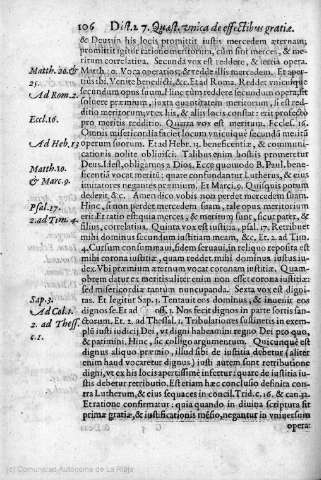 106 Dist. 27. Quæst. vnica de effectibus gratiæ.
& Deus in his locis promittit iustis mercedem æternam;
promittit igitur ratione meritorum, cùm sint merces, & me-
ritum correlatiua. Secunda vox est reddere, & tertia opera.
Matth. 20. &
25.
Matth. 20. Voca operarios; & redde illis mercedem. Et apertius
ibi. Venite benedicti, &c. Et ad Rom. 2. Reddet vnicuique
Ad Rom. 2.
secundum opus suum. Hinc
solvere præmium, iuxta quantitatem meritorum, si est red-
ditio meritorum, vtex his, & aliis locis constat: erit profectò
Eccl. 16.
pro meritis redditio. Quarta vox est meritum. Eccles. 16.
Omnis misericordia faciet locum vnicuique secundũ meritũ
Ad Heb. 13
operum suorum. Et ad Hebr. 13. beneficentiæ, & communi-
cationis nolite obliuisci. Talibus enim hostiis promeretur
Deus. Idest, obligamus Deus. Ecce quo modo B. Paul. bene-
Matth. 10.
& Marc. 9.
ficentiã vocat meritũ: quare confundantur Lutherus, & eius
imitatores negantes præmium. Et Marci 9. Quisquis potum
dederit, &c. Amen dico vobis non perdet mercedem suam.
Psal. 17.
Hinc, si non perdet mercedem suam, tale opus meritorium
2. ad Tim. 4.
erit. Et ratio est quia merces, & meritum sunt, sicut pater, &
filius, correlatiua. Quinta vox est iustitia, psal. 17. Retribuet
mihi dominus secundum iustitiam meam, &c. Et 2. ad Tim.
4. Cursum consummaui, fidem seruaui, in reliquo reposita est
mihi corona iustitiæ, quam reddet mihi dominus iustus iu-
dex. Vbi præmium æternum vocat coronam iustitiæ. Quam-
obrem datur ex meritis, aliter enim non esset corona iustitiæ;
sed misericordiæ tantum nuncupanda. Sexta vox est digni-
Sap. 3.
tas. Et legitur Sap. 3. Tentauit eos dominus, & inuenit eos
Ad Col. 1.
dignos se. Et ad Coloss. 1. Nos fecit dignos in parte sortis san-
2. ad Thess.
c. 1.
ctorum. Et 2. ad Thessal. 1. Tribulationes sustinetis in exem-
plũ iusti iudicij Dei, vt digni habeamini regno Dei pro quo,
& patimini. Hinc, sic colligo argumentum. Quicunque est
dignus aliquo præmio, illud sibi de iustitia debetur (aliter
enim haud vocaretur dignus) iusti autem sunt retributione
digni, vt ex his locis apertissimè infertur: quare de iustitia iis-
tis debetur retributio. Est etiam hæc conclusio definita con-
tra Lutherum, & eius sequaces in concil. Trid. c. 16. & can. 32.
Et ratione confirmatur: quia quando in diuina scriptura fit
primæ gratiæ, & iustificationis mẽsio, negantur in vniuersum
opera:
(c) Comunidad Autónoma de La Rioja